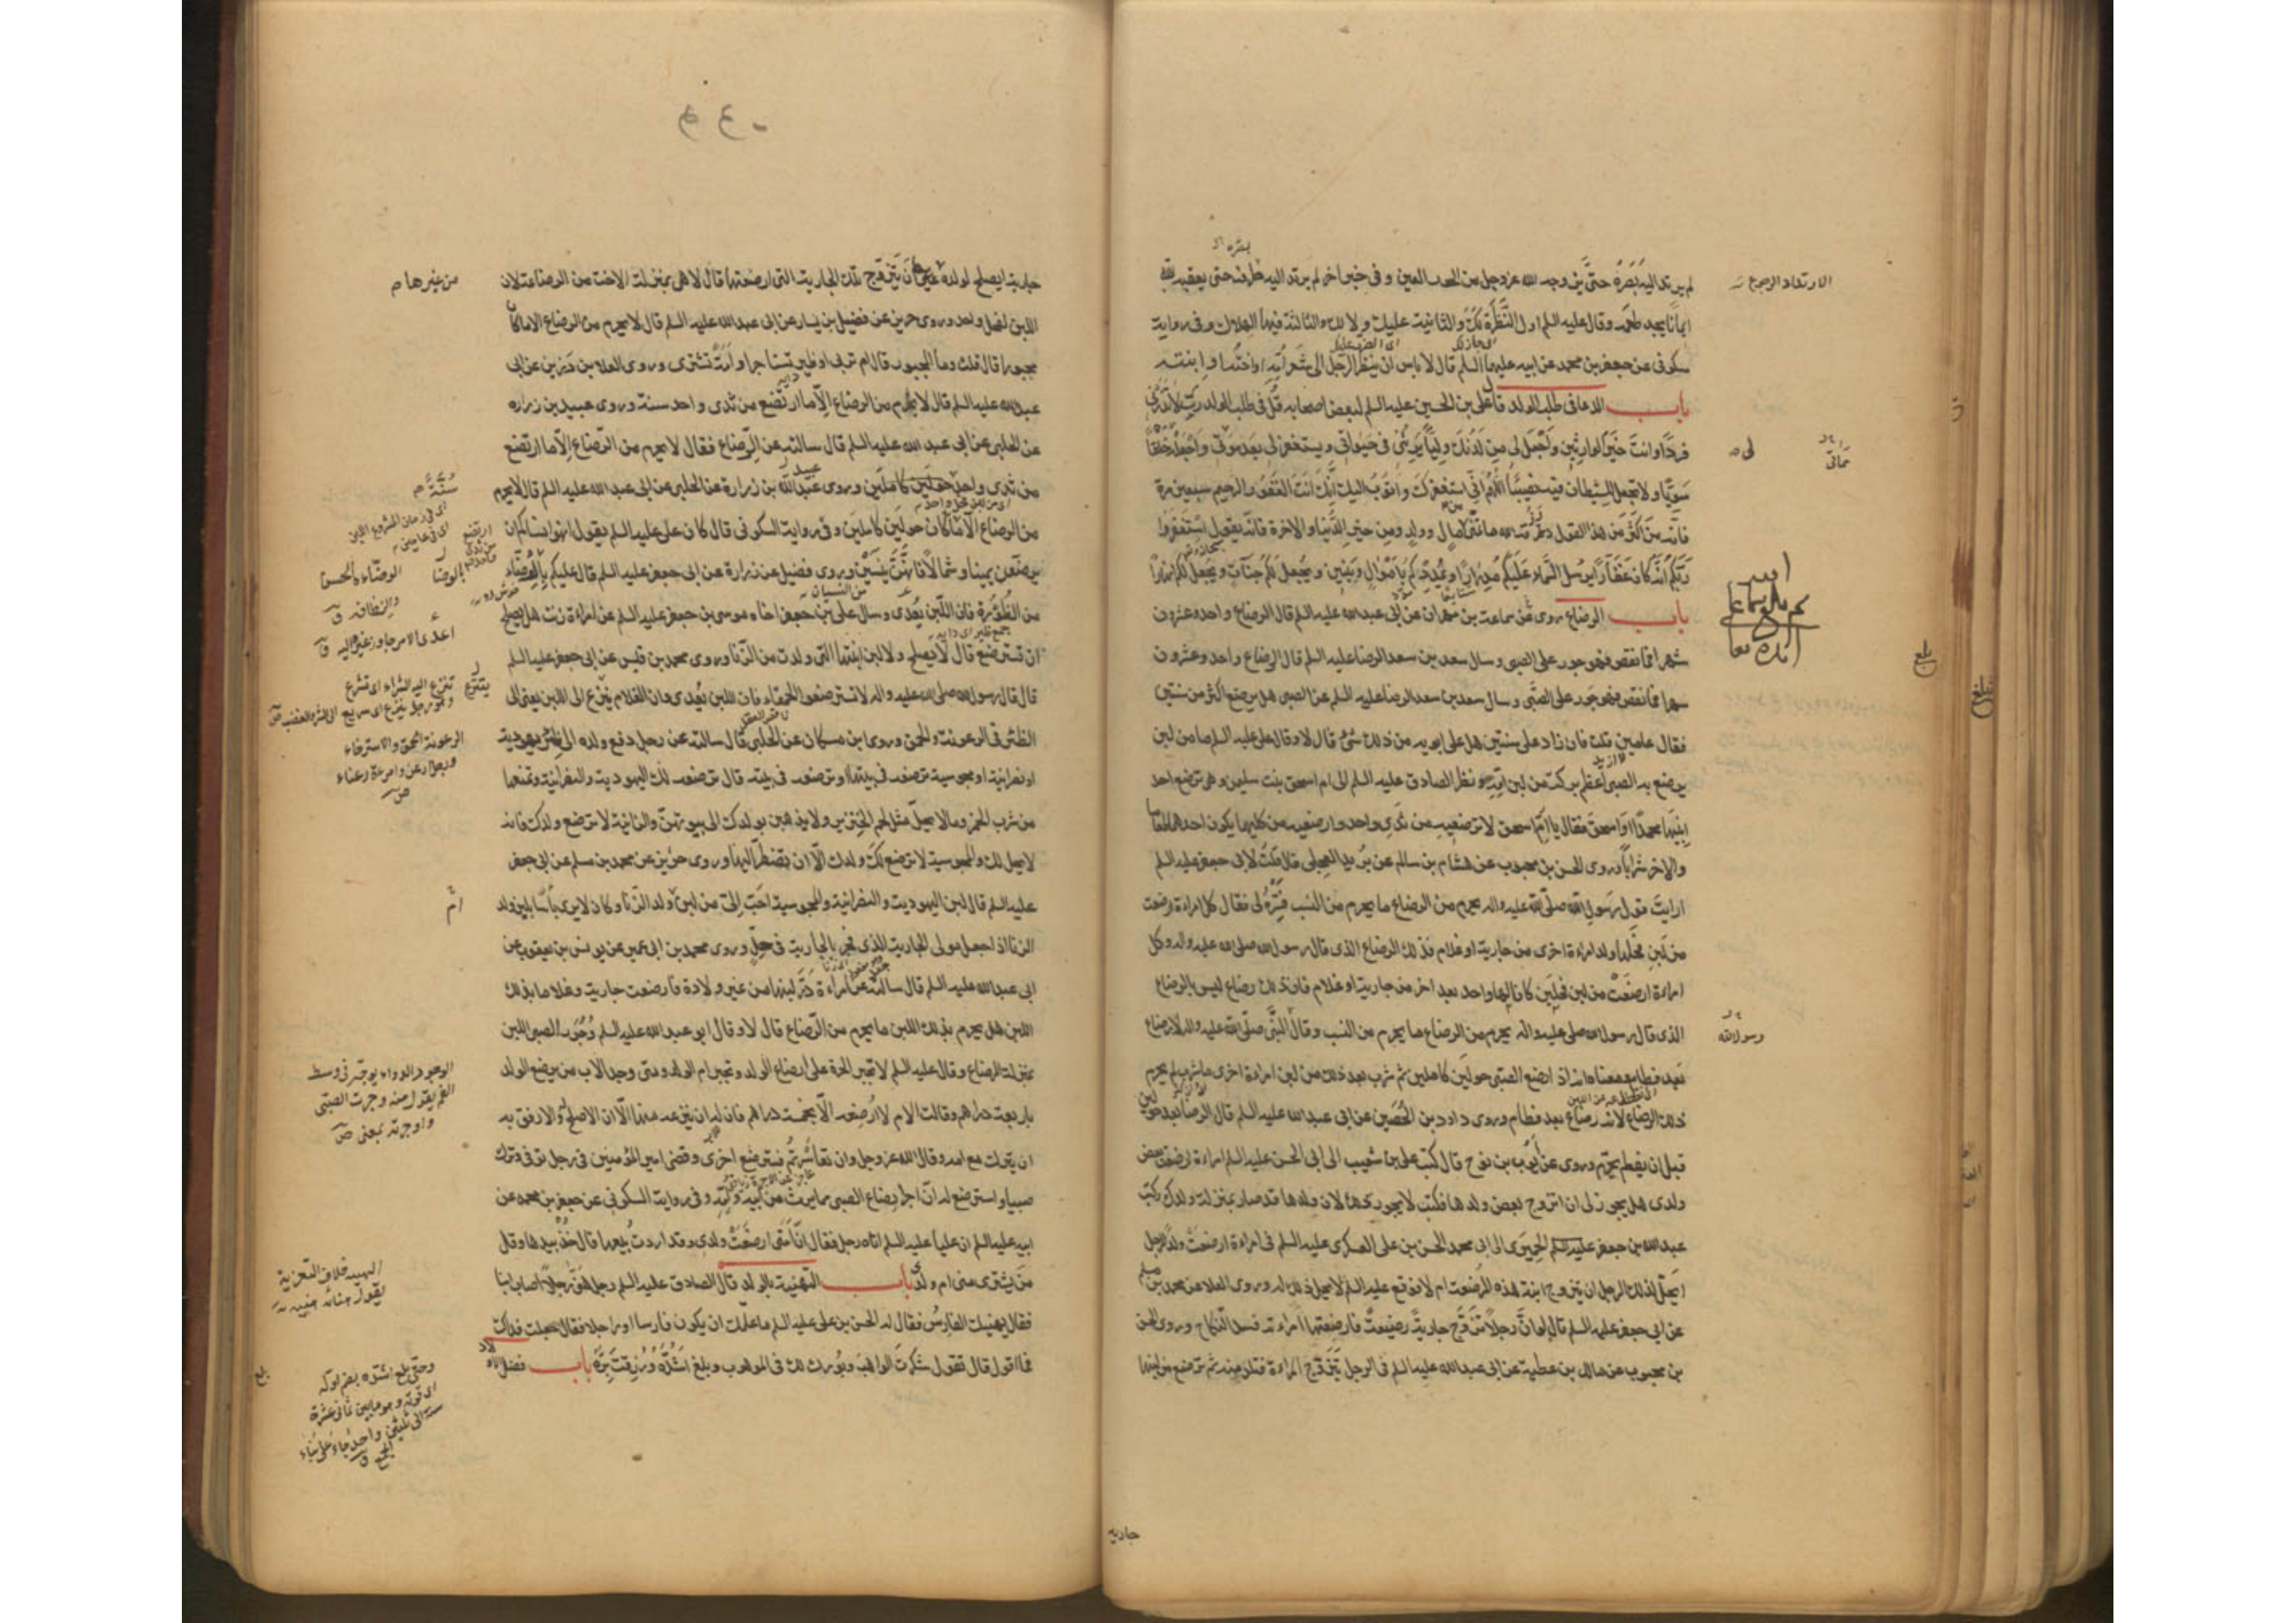 لم يرتد اليه بصره حتى يزوجه الله عز وجل من الحور العين وفى خبر اخر لم يرتد اليه طرفه حتى يعقبه الله
ايمانا يجد طعمه وقال عليه السلم اول النظرة لك والثانية عليك ولا لك والثالثة فيها الهلاك وفى رواية
سكونى عن جعفر بن محمد عن ابيه عليهما السلم قال لا باس ان ينظر الرجل الى شعر امه او اخته او ابنته
باب الدعا فى طلب الولد قال على بن الحسين عليه السلم لبعض اصحابه قل فى طلب الولد رب لا تذرنى
فردا وانت خير الوارثين واجعل لى من لدنك وليا يرثنى فى حيوتى ويستغفر لى بعد موتى واجعله خلقا
سويا ولا تجعل للشيطان فيه نصيبا اللهم انى استغفرك واتوب اليك انك انت الغفور الرحيم سبعين مرة
فانه من اكثر من هذا القول رزقه الله ما تمنى من مال وولد ومن خير الدنيا والاخرة فانه يقول استغفروا
ربكم انه كان غفارا يرسل السماء عليكم مدرارا ويمددكم باموال وبنين ويجعل لكم جنات ويجعل لكم انهارا
باب الرضاع روى عن سماعة بن مهران عن ابى عبد الله عليه السلم قال الرضاع واحد وعشرون
شهرا فما نقص فهو جور على الصبى وسال سعد بن سعد الرضا عليه السلم قال الرضاع واحد وعشرون
شهرا فما نقص فهو جور على الصبى وسال سعد بن سعد الرضا عليه السلم عن الصبى هل يرضع اكثر من سنتين
فقال عامين قلت فان زاد على سنتين هل على ابويه من ذلك شئ قال لا وقال على عليه السلم ما من لبن
يرضع به الصبى اعظم بركة من لبن امه ونظر الصادق عليه السلم الى ام اسحق بنت سليمن وهى ترضع احد
ابنيها محمدا او اسحق فقال يا ام اسحق لا ترضعيه من ثدى واحد وارضعيه من كليهما يكون احدهما طعاما
والاخر شرابا وروى الحسن بن محبوب عن هشام بن سالم عن بريد العجلى قال قلت لابى جعفر عليه السلم
ارايت قول رسول الله صلى الله عليه واله يحرم من الرضاع ما يحرم من النسب فسره لى فقال كل امراة ارضعت
من لبن فحلها ولد امراة اخرى من جارية او غلام فذلك الرضاع الذى قال رسول الله صلى الله عليه واله وكل
امراة ارضعت من لبن فحلين كانا لها واحد بعد اخر من جارية او غلام فان ذلك رضاع ليس بالرضاع
الذى قال رسول الله صلى عليه واله يحرم من الرضاع ما يحرم من النسب وقال النبى صلى الله عليه واله لا رضاع
بعد فطام معناه انه اذا ارضع الصبى حولين كاملين ثم شرب بعد ذلك من لبن امراة اخرى ما شرب لم يحرم
ذلك الرضاع لانه رضاع بعد فطام وروى داود بن الحصين عن ابى عبد الله عليه السلم قال الرضاع بعد حولين
قبل ان يفطم يحرم وروى عن ايوب بن نوح قال كتب على بن شعيب الى ابى الحسن عليه السلم امراة ارضعت بعض
ولدى هل يجوز لى ان اتزوج بعض ولدها فكتب لا يجوز لك لان ولدها قد صار بمنزلة ولدك وكتب
عبد الله بن جعفر الحميرى الى ابى محمد الحسن بن على العسكرى عليه السلم فى امراة ارضعت ولد الرجل
ايحل لذلك الرجل ان يتزوج ابنة هذه المرضعة ام لا فوقع عليه السلم لا يحل ذلك له وروى العلا عن محمد بن مسلم
عن ابى جعفر عليه السلم قال لو ان رجلا تزوج جارية رضيعة فارضعتها امراته فسد النكاح وروى الحسن
بن محبوب عن مالك بن عطية عن ابى عبد الله عليه السلم فى الرجل يتزوج المراة فتلد منه ثم ترضع من لبنها
جارية
الارتداد الرجوع
رسول الله
جارية ايصلح لولده من غيرها ان يتزوج تلك الجارية التى ارضعتها قال لا هى بمنزلة الاخت من الرضاعة لان
اللبن لفحل واحد وروى حريز عن فضيل بن يسار عن ابى عبد الله عليه السلم قال لا يحرم من الرضاع الا ما كان
مجبورا قال قلت وما المجبور قال ام تربى او ظئر تستاجر او امة تشترى وروى العلا بن رزين عن ابى
عبد الله عليه السلم قال لا يحرم من الرضاع الا ما ارتضع من ثدى واحد سنة وروى عبيد بن زرارة
عن الحلبى عن ابى عبد الله عليه السلم قال سالته عن الرضاع فقال لا يحرم من الرضاع الا ما ارتضع
من ثدى واحد حولين كاملين وروى عبد الله بن زرارة عن الحلبى عن ابى عبد الله عليه السلم قال لا يحرم
من الرضاع الا ما كان حولين كاملين وفى رواية السكونى قال كان على عليه السلم يقول انهوا نساءكم ان
يرضعن يمينا وشمالا فانهن ينسين وروى فضيل عن زرارة عن ابى جعفر عليه السلم قال عليكم بالوضاء
من الظؤرة فان اللبن يعدى وسال على بن جعفر اخاه موسى بن جعفر عليه السلم عن امراة زنت هل يصلح
ان تسترضع قال لا يصلح ولا لبن ابنتها التى ولدت من الزنا وروى محمد بن قيس عن ابى جعفر عليه السلم
قال قال رسول الله صلى الله عليه واله لا تسترضعوا الحمقاء فان اللبن يعدى وان الغلام ينزع الى اللبن يعنى الى
الظئر فى الرعونة والحمق وروى ابن مسكان عن الحلبى قال سالته عن رجل دفع ولده الى ظئر يهودية
او نصرانية او مجوسية ترضعه فى بيتها او ترضعه فى بيته قال ترضعه لك اليهودية والنصرانية وتمنعها
من شرب الخمر وما لا يحل مثل لحم الخنزير ولا يذهبن بولدك الى بيوتهن والزانية لا ترضع ولدك فانه
لا يحل لك والمجوسية لا ترضع لك ولدك الا ان تضطر اليها وروى حريز عن محمد بن مسلم عن ابى جعفر
عليه السلم قال لبن اليهودية والنصرانية والمجوسية احب الى من لبن ولد الزنا وكان لا يرى باسا بلبن ولد
الزنا اذا جعل مولى الجارية الذى فجر بالجارية فى حل وروى محمد بن ابى عمير عن يونس بن يعقوب عن
ابى عبد الله عليه السلم قال سالته عن امراة در لبنها من غير ولادة فارضعت جارية وغلاما بذلك
اللبن هل يحرم بذلك اللبن ما يحرم من الرضاع قال لا وقال ابو عبد الله عليه السلم وجور الصبى اللبن
بمنزلة الرضاع وقال عليه السلم لا تجبر الحرة على ارضاع الولد وتجبر ام الولد ومتى وجد الاب من يرضع الولد
باربعة دراهم وقالت الام لا ارضعه الا بخمسة دراهم فان له ان ينزعه منها الا ان الاصلح والارفق به
ان يترك مع امه وقال الله عز وجل وان تعاسرتم فسترضع له اخرى وقضى امير المؤمنين فى رجل توفى وترك
صبيا واسترضع له ان اجر رضاع الصبى مما يرث من ابيه وامه وفى رواية السكونى عن جعفر بن محمد عن
ابيه عليه السلم ان عليا عليه السلم اتاه رجل فقال ان امتى ارضعت ولدى وقد اردت بيعها قال خذ بيدها وقل
من يشترى منى ام ولدى باب التهنية بالولد قال الصادق عليه السلم رجل هنا رجلا اصاب ابنا
فقال يهنيك الفارس فقال له الحسن بن على عليه السلم ما علمك ان يكون فارسا او راجلا فقال جعلت فداك
فما اقول قال تقول شكرت الواهب وبورك لك فى الموهوب وبلغ اشده ورزقت بره باب فضل الاولاد
من غيرها م
الوضاءة الحسن
والنظافة ق
اعدى الامر جاوز غيره اليه ق
تنزع اليه الشراء اى تشرع
الرعونة الحمق والاسترخاء
ورجل ارعن وامراة رعناء
ص
الوجور الدواء يوجر فى وسط
الفم يقول منه وجرت الصبى
واوجرته بمعنى ص
التهنية خلاف التعزية
وحتى يبلغ اشده بضم اوله
اى قوته وهو ما بين ثمانى عشرة
سنة الى ثلثين واحد جاء على بناء
الجمع ق
بلغ